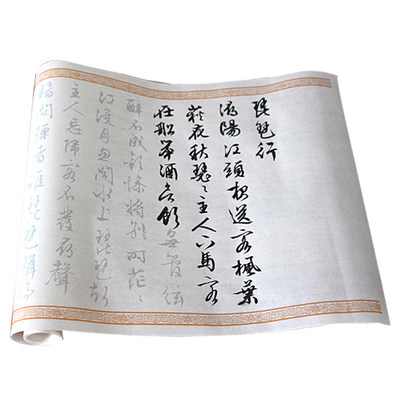 琵琶行
潯陽江頭夜送客楓葉
荻花秋瑟〻主人下馬客
在船舉酒欲飲無管絃
醉不成歡慘將別时茫〻
江浸月忽聞水上琵琶聲
主人忘歸客不發尋聲
暗問彈者誰琵琶聲